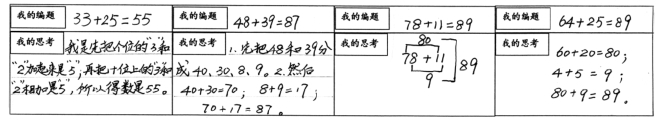 我的编题 33+25=55
我的思考 我是先把个位的“3”和
“2”加起来是5，再把十位上的“3”和
“2”相加是5，所以得数是55。
我的编题 48+39=87
我的思考 1.先把48和39分
成40、30、8、9。2.然后
40+30=70； 8+9=17；
70+17=87。
我的编题 78+11=89
我的思考 80
78+11 89
9
我的编题 64+25=89
我的思考
60+20=80；
4+5=9；
80+9=89。